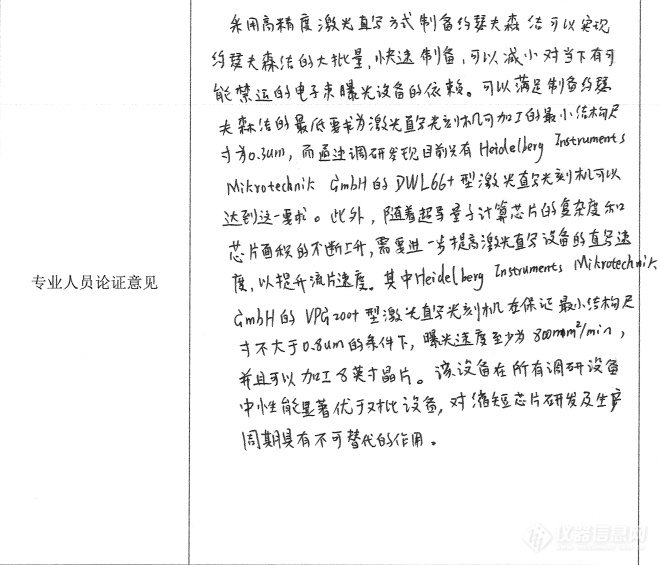 采用高精度激光直写方式制备约瑟夫森结可以实现
约瑟夫森结的大批量,快速制备,可以减小对当下有可
能禁运的电子束曝光设备的依赖。可以满足制备约瑟
夫森结的最低要求为激光直写光刻机可加工的最小结构尺
寸为0.3um,而通过调研发现目前只有 Heidelberg Instruments
Mikrotechnik GmbH的DWL66+型激光直写光刻机可以
达到这一要求。此外,随着超导量子计算芯片的复杂度和
芯片面积的不断上升,需要进一步提高激光直写设备的直写速
度,以提升流片速度。其中Heidelberg Instruments Mikrotechnik
GmbH的 VPG200+型激光直写光刻机在保证最小结构尺
寸不大于0.8um的条件下,曝光速度至少为800mm²/min,
并且可以加工8英寸晶片。该设备在所有调研设备
中性能显著优于对比设备,对缩短芯片研发及生产
周期具有不可替代的作用。
专业人员论证意见
仪器信息网